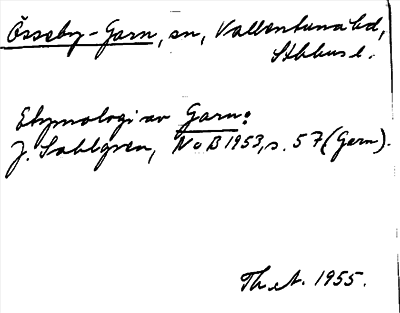 Össeby-Garn, sn, Vallentuna hd,
Sthlms l.
Etymologi av Garn:
J. Sahlgren, NoB 1953, s. 57 (Garn).
Th. A. 1955.